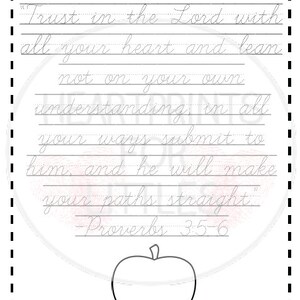 "Trust in the Lord with
all your heart and lean
not on your own
understanding; in all
your ways submit to
him, and he will make
your paths straight."
-Proverbs 3:5-6
HEARTPRINTS
FOR
LITTLES